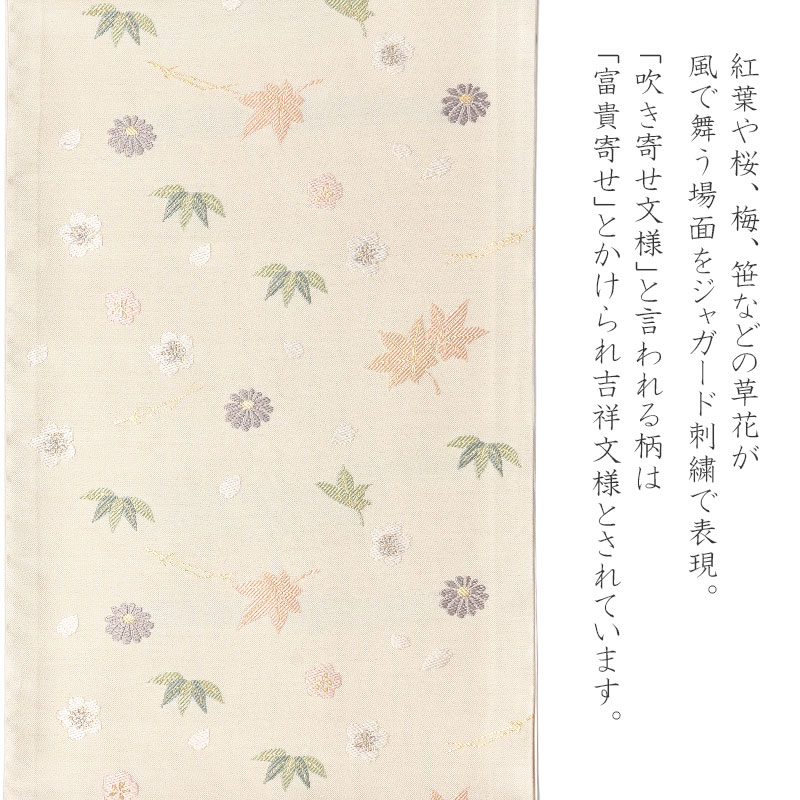 紅葉や桜、梅、笹などの草花が
風で舞う場面をジャガード刺繍で表現。
「吹き寄せ文様」と言われる柄は
「富貴寄せ」とかけられ吉祥文様とされています。